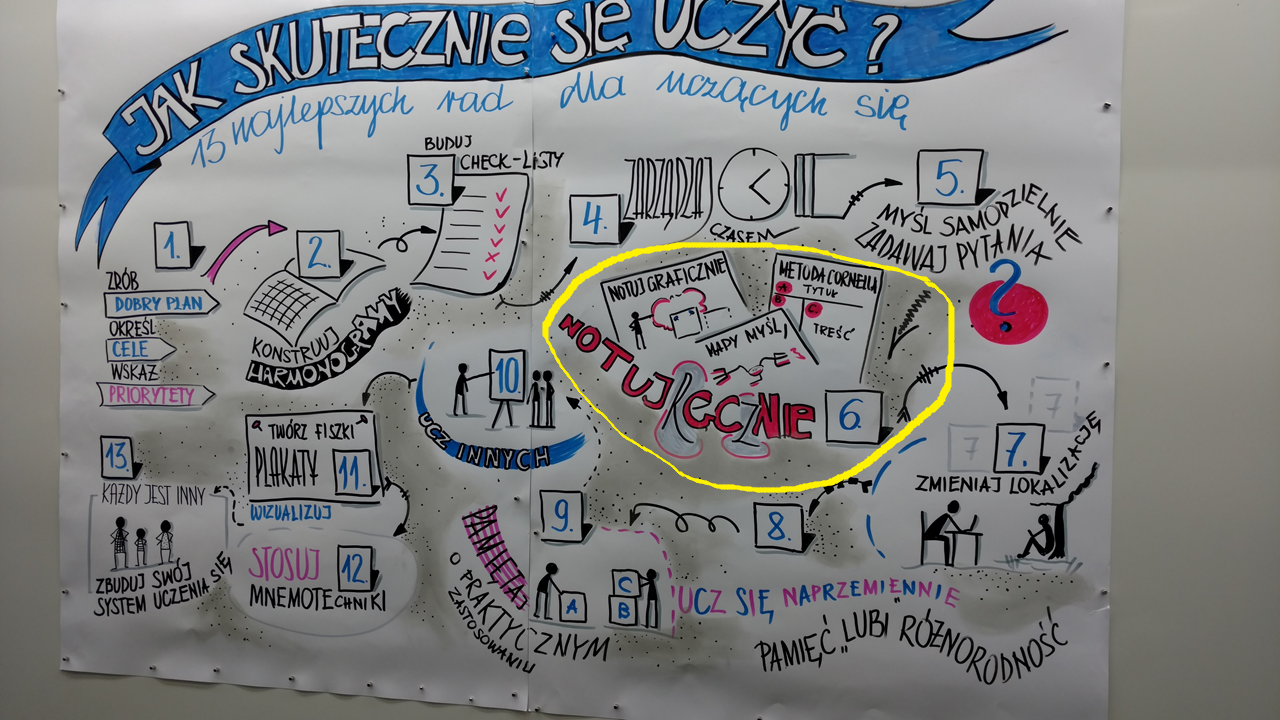 JAK SKUTECZNIE SIĘ UCZYĆ?
13 najlepszych rad dla uczących się
1.
ZRÓB
DOBRY PLAN
OKREŚL
CELE
WSKAŻ
PRIORYTETY
2.
KONSTRUUJ
HARMONOGRAMY
3.
BUDUJ
CHECK-LISTY
4.
ZARZĄDZAJ
CZASEM
5.
MYŚL SAMODZIELNIE
ZADAWAJ PYTANIA
?
NOTUJ GRAFICZNIE
METODA CORNELLA
A TYTUŁ
B C
TREŚĆ
MAPY MYŚLI
NOTUJ RĘCZNIE
6.
7
7
7.
ZMIENIAJ LOKALIZACJĘ
8.
UCZ SIĘ NAPRZEMIENNIE
PAMIĘĆ „LUBI” RÓŻNORODNOŚĆ
9.
A
C
B
PAMIĘTAJ
O PRAKTYCZNYM
ZASTOSOWANIU
10.
UCZ INNYCH
TWÓRZ FISZKI
PLAKATY
11.
WIZUALIZUJ
STOSUJ
12.
MNEMOTECHNIKI
13.
KAŻDY JEST INNY
ZBUDUJ SWÓJ
SYSTEM UCZENIA SIĘ